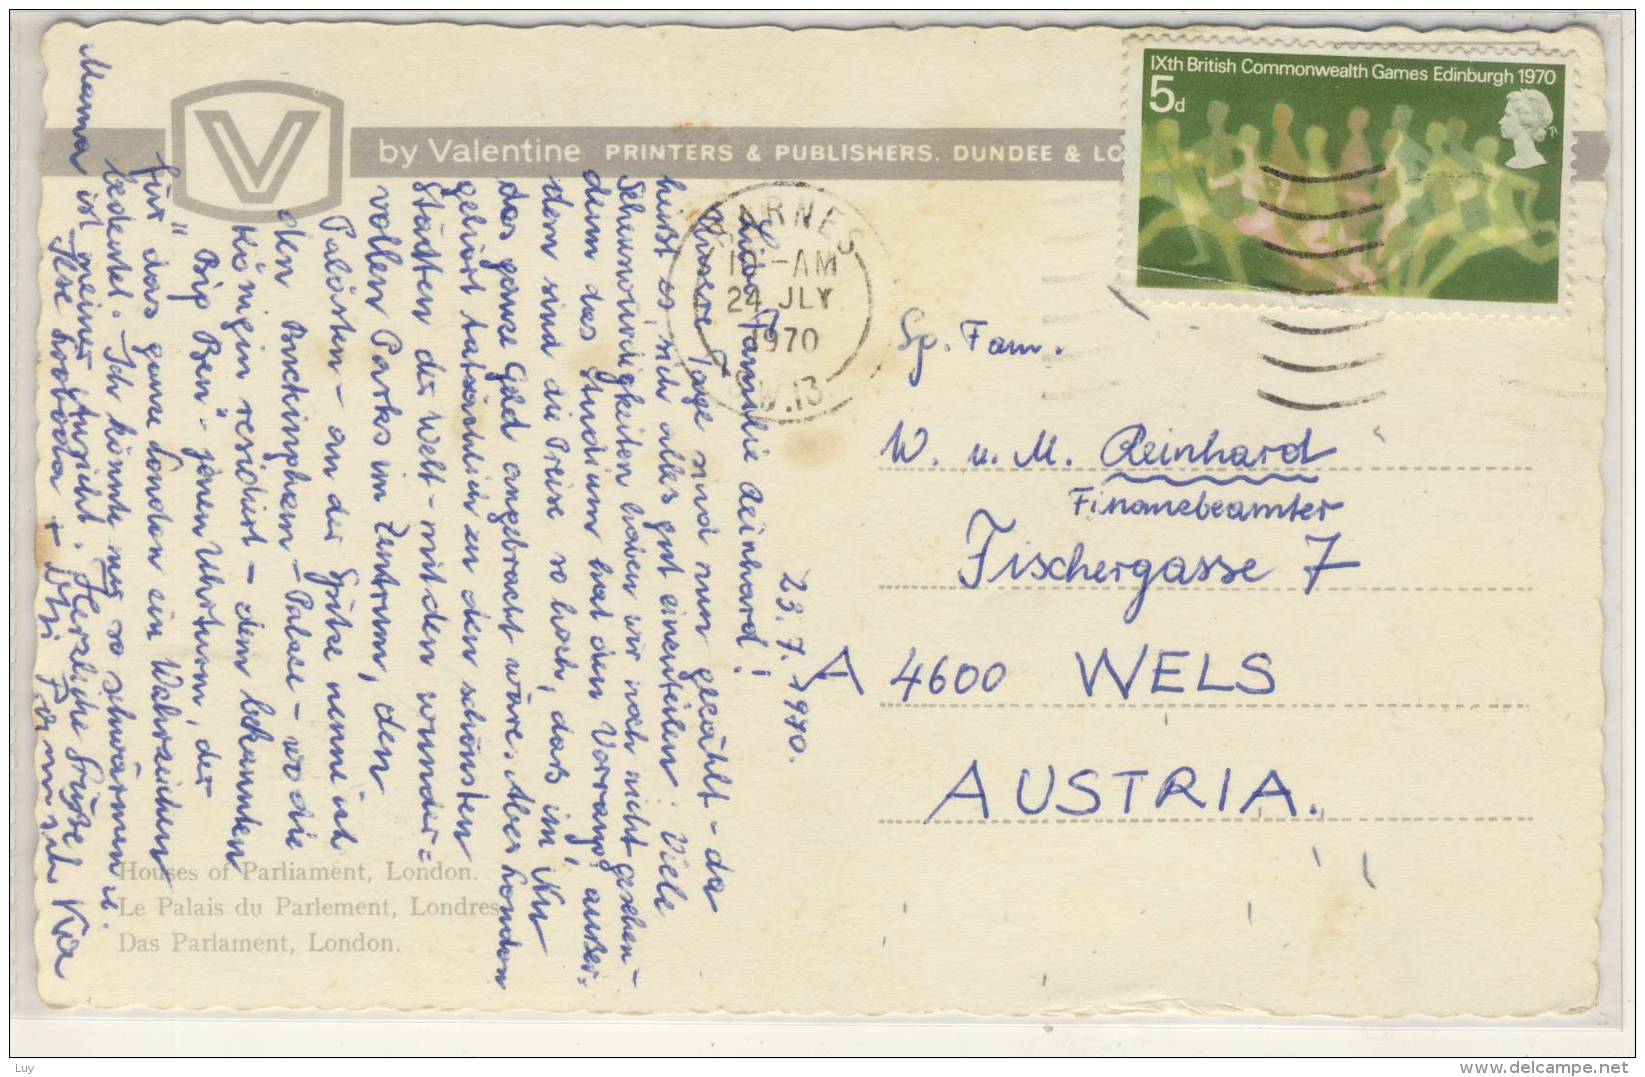 by Valentine PRINTERS & PUBLISHERS. DUNDEE & LO
IXth British Commonwealth Games Edinburgh 1970
5d
BARNES
-AM
24 JLY
1970
S.W.13
Sp. Fam.
W. u. M. Reinhard
Finanzbeamter
Fischergasse 7
A 4600 WELS
AUSTRIA.
23.7.1970.
Liebe Familie Reinhard!
Unsere Tage sind nun gezählt - da
heißt es, sich alles gut einzuteilen. Viele
Sehenswürdigkeiten haben wir noch nicht gesehen -
denn das Studium hat den Vorrang! außer-
dem sind die Preise so hoch, daß im Nu
das ganze Geld angebracht wäre. Aber London
gehört tatsächlich zu den schönsten
Städten der Welt - mit den wunder=
vollen Parks im Zentrum, den
Palästen - an der Spitze nenne ich
den Buckinpham - Palace - wo die
Königin residiert - dem bekannten
"Bip Ben" - jenen Uhrturm, der
für das ganze London ein Wahrzeichen
bedeutet. - Ich könnte nur so schwärmen u.
Mama ist meiner Ansicht. Herzliche Grüße
Ilse Svoboda +
Houses of Parliament, London.
Le Palais du Parlement, Londres
Das Parlament, London.
Luy
delcampe.net